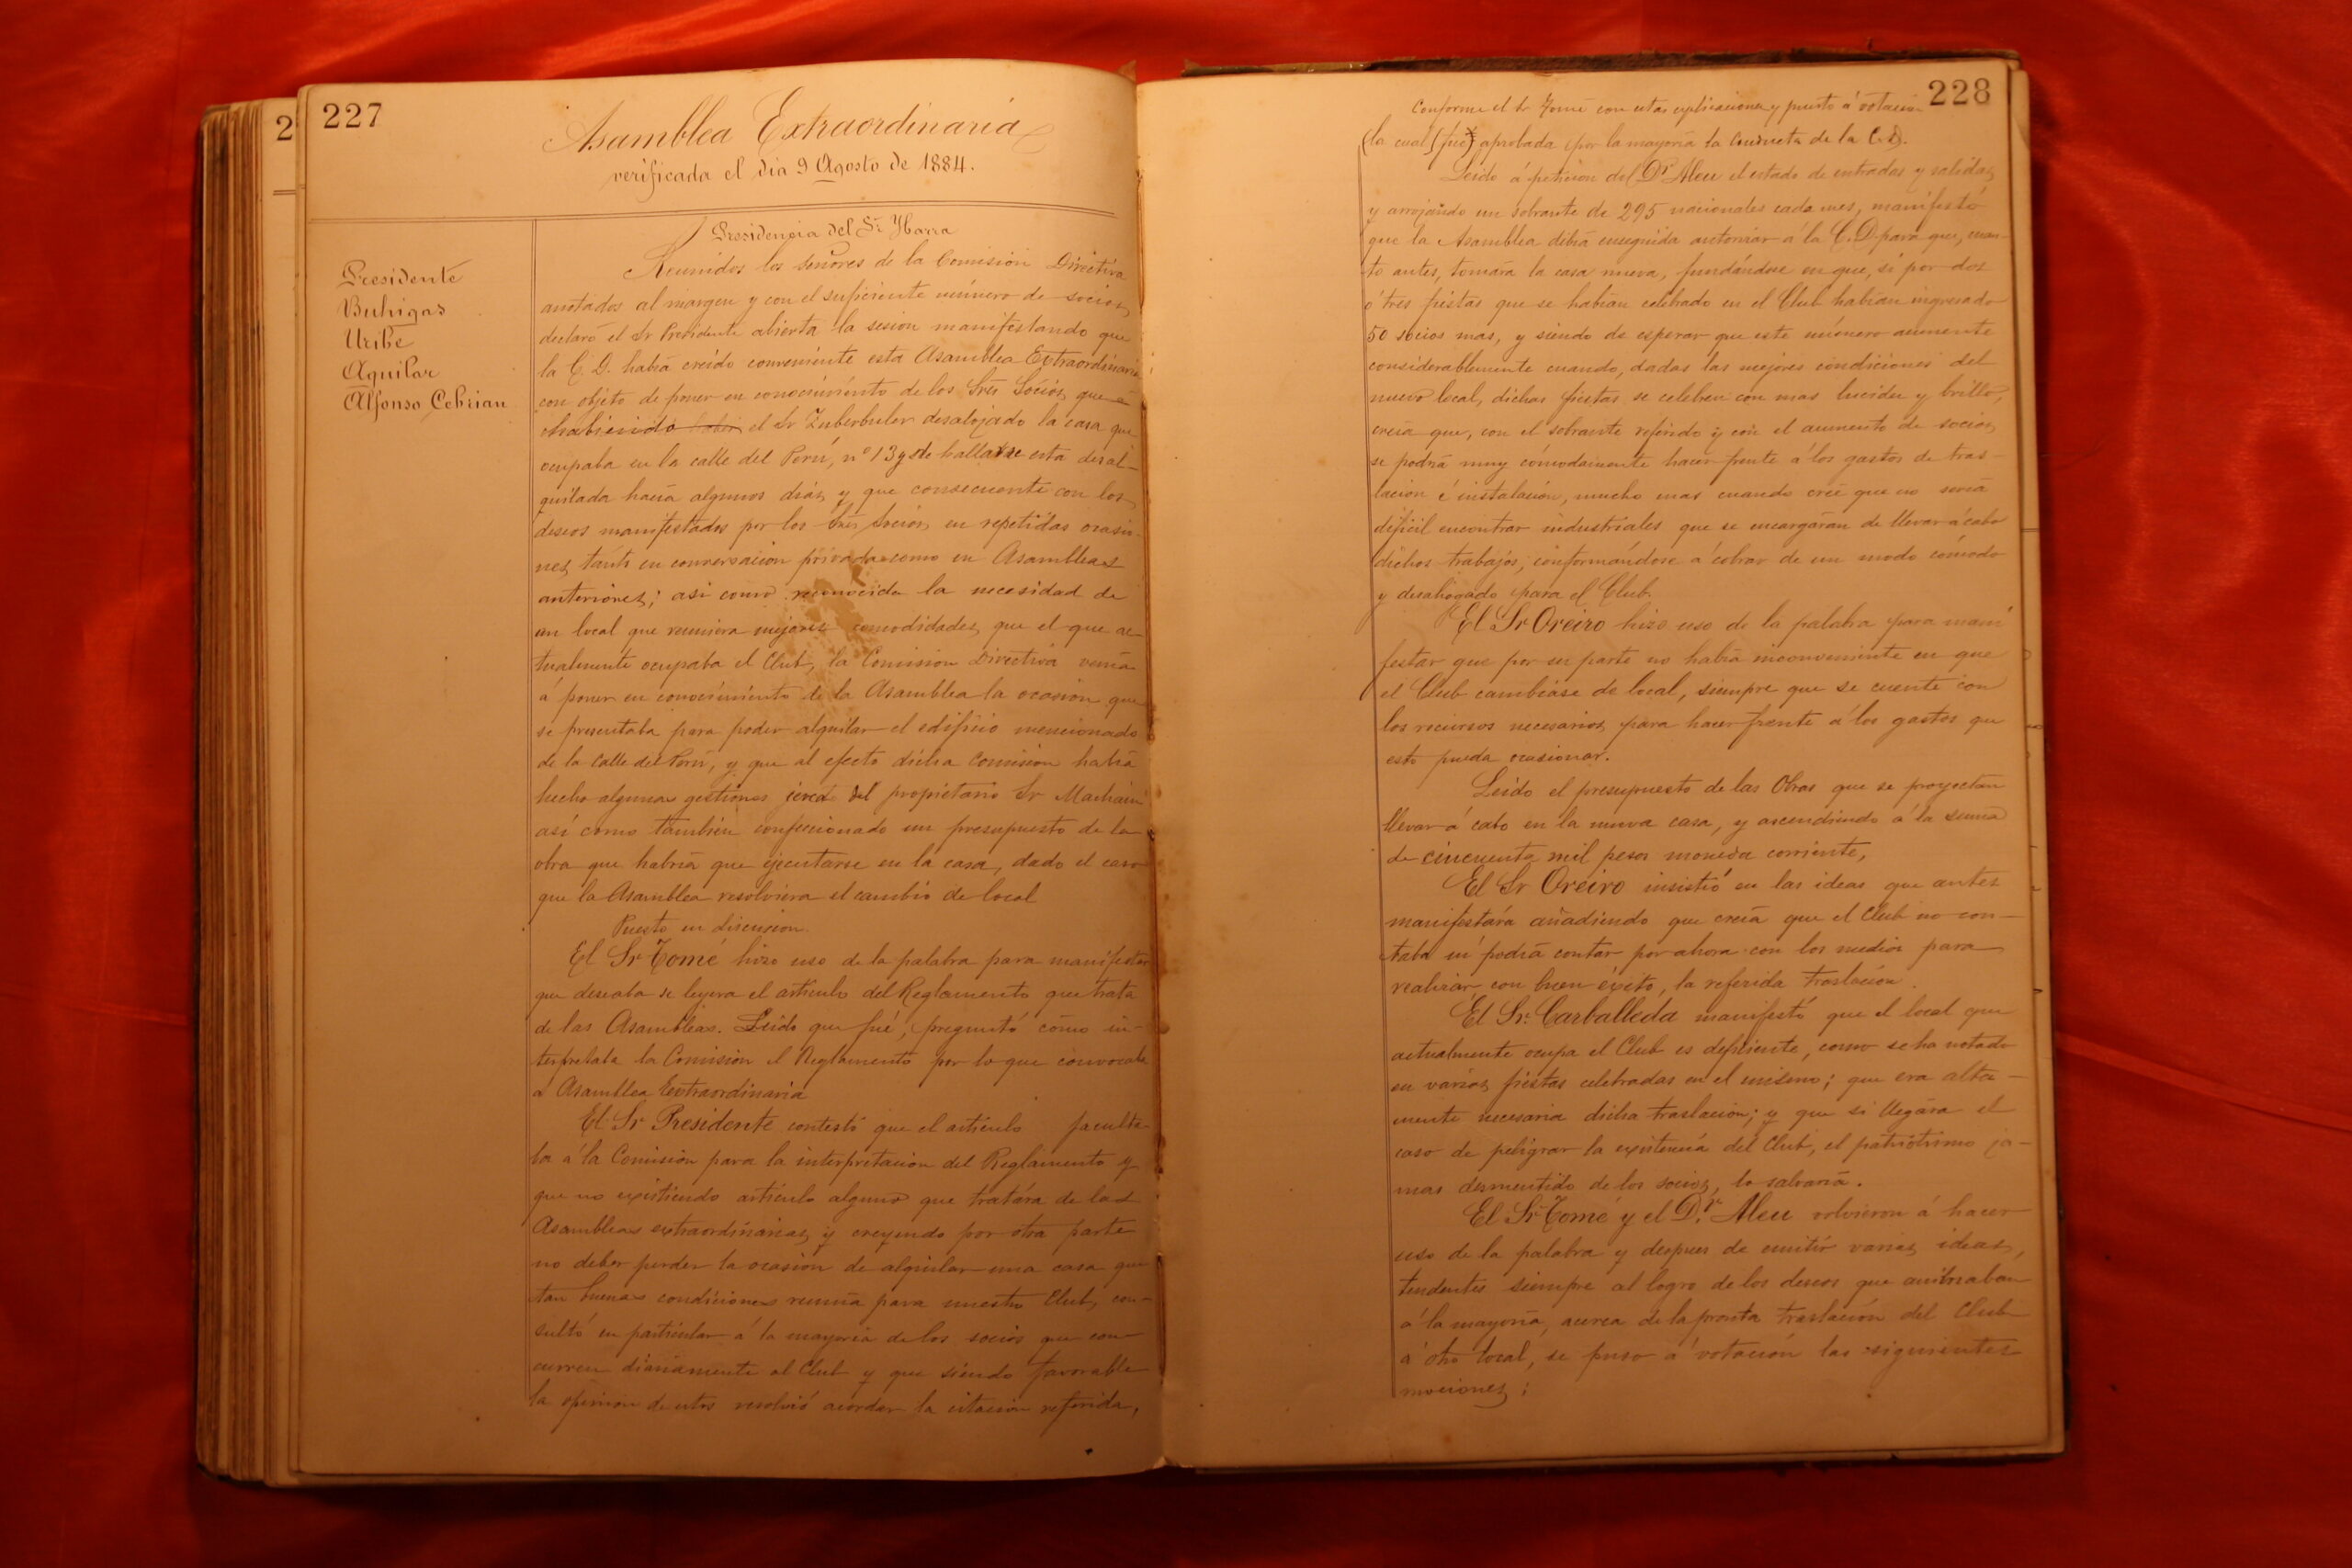 227
2
Asamblea Extraordinaria
verificada el dia 9 Agosto de 1884.
Presidente
Buhigas
Uribe
Aguilar
Alfonso Cebrian
Presidencia del Sr. Ybarra
Reunidos los Señores de la Comision Directiva
anotados al margen y con el suficiente número de socios,
declaró el Sr Presidente abierta la sesion manifestando que
la C. D. habia creido conveniente esta Asamblea Extraordinaria
con objeto de poner en conocimiento de los Sres Socios, que
habiendo el Sr Zuberbuler desalojado la casa que
ocupaba en la calle del Perú, nº 13 y de hallarse esta desal-
quilada hacia algunos dias, y que consecuente con los
deseos manifestados por los Sres Socios, en repetidas ocasio-
nes, tanto en conversacion privada como en Asambleas
anteriores; asi como reconocida la necesidad de
un local que reuniera mejores comodidades, que el que ac-
tualmente ocupaba el Club, la Comision Directiva venia
á poner en conocimiento de la Asamblea la ocasion que
se presentaba para poder alquilar el edificio mencionado
de la Calle del Perú, y que al efecto dicha Comision habia
hecho algunas gestiones cerca del propietario Sr Machain
así como tambien confeccionado un presupuesto de la
obra que habria que ejecutarse en la casa, dado el caso
que la Asamblea resolviera el cambio de local
Puesto en discusion.
El Sr Tomé hizo uso de la palabra para manifestar
que deseaba se leyera el articulo del Reglamento que trata
de las Asambleas. Leido que fué, preguntó cómo in-
terpretaba la Comision el Reglamento por lo que convocaba
á Asamblea Extraordinaria
El Sr Presidente contestó que el articulo faculta-
ba á la Comision para la interpretacion del Reglamento y
que no existiendo articulo alguno que tratára de las
Asambleas extraordinarias, y creyendo por otra parte
no deber perder la ocasion de alquilar una casa que
tan buenas condiciones reunia para nuestro Club, con-
sultó en particular á la mayoria de los socios que con-
curren diariamente al Club y que siendo favorable
la opinion de estos resolvió acordar la citacion referida,
228
Conforme el Sr Tomé con estas esplicaciones y puesto á votacion
(la cual) fué aprobada por la mayoria la Conducta de la C. D.
Leido á peticion del Dr Aleu el estado de entradas y salidas,
y arrojando un sobrante de 295 nacionales cada mes, manifestó
que la Asamblea debia enseguida autorizar á la C. D. para que, cuan-
to antes, tomára la casa nueva, fundándose en que, si por dos
ó tres fiestas que se habian celebrado en el Club habian ingresado
50 socios mas, y siendo de esperar que este número aumente
considerablemente cuando, dadas las mejores condiciones del
nuevo local, dichas fiestas se celebren con mas lucidez y brillo,
creia que, con el sobrante referido y con el aumento de socios,
se podria muy cómodamente hacer frente á los gastos de tras-
lacion é instalacion, mucho mas cuando creé que no seria
dificil encontrar industriales que se encargáran de llevar á cabo
dichos trabajos, conformándose á cobrar de un modo cómodo
y desahogado para el Club.
El Sr Oreiro hizo uso de la palabra para mani
festar que por su parte no habia inconveniente en que
el Club cambiase de local, siempre que se cuente con
los recursos necesarios, para hacer frente á los gastos que
esto pueda ocasionar.
Leido el presupuesto de las Obras que se proyectan
llevar á cabo en la nueva casa, y ascendiendo á la suma
de cincuenta mil pesos moneda corriente,
El Sr Oreiro insistió en las ideas que antes
manifestára añadiendo que creia que el Club no con-
taba ni podia contar por ahora con los medios para
realizar con buen éxito, la referida traslacion.
El Sr. Carballeda manifestó que el local que
actualmente ocupa el Club es deficiente, como se ha notado
en varias fiestas celebradas en el mismo; que era alta-
mente necesaria dicha traslacion; y que si llegára el
caso de peligrar la existencia del Club, el patriotismo ja-
mas desmentido de los socios, lo salvaria.
El Sr Tomé y el Dr. Aleu volvieron á hacer
uso de la palabra y despues de emitir varias ideas,
tendentes siempre al logro de los deseos que animaban
á la mayoria, acerca de la pronta traslacion del Club
á otro local, se puso á votacion las siguientes
mociones;